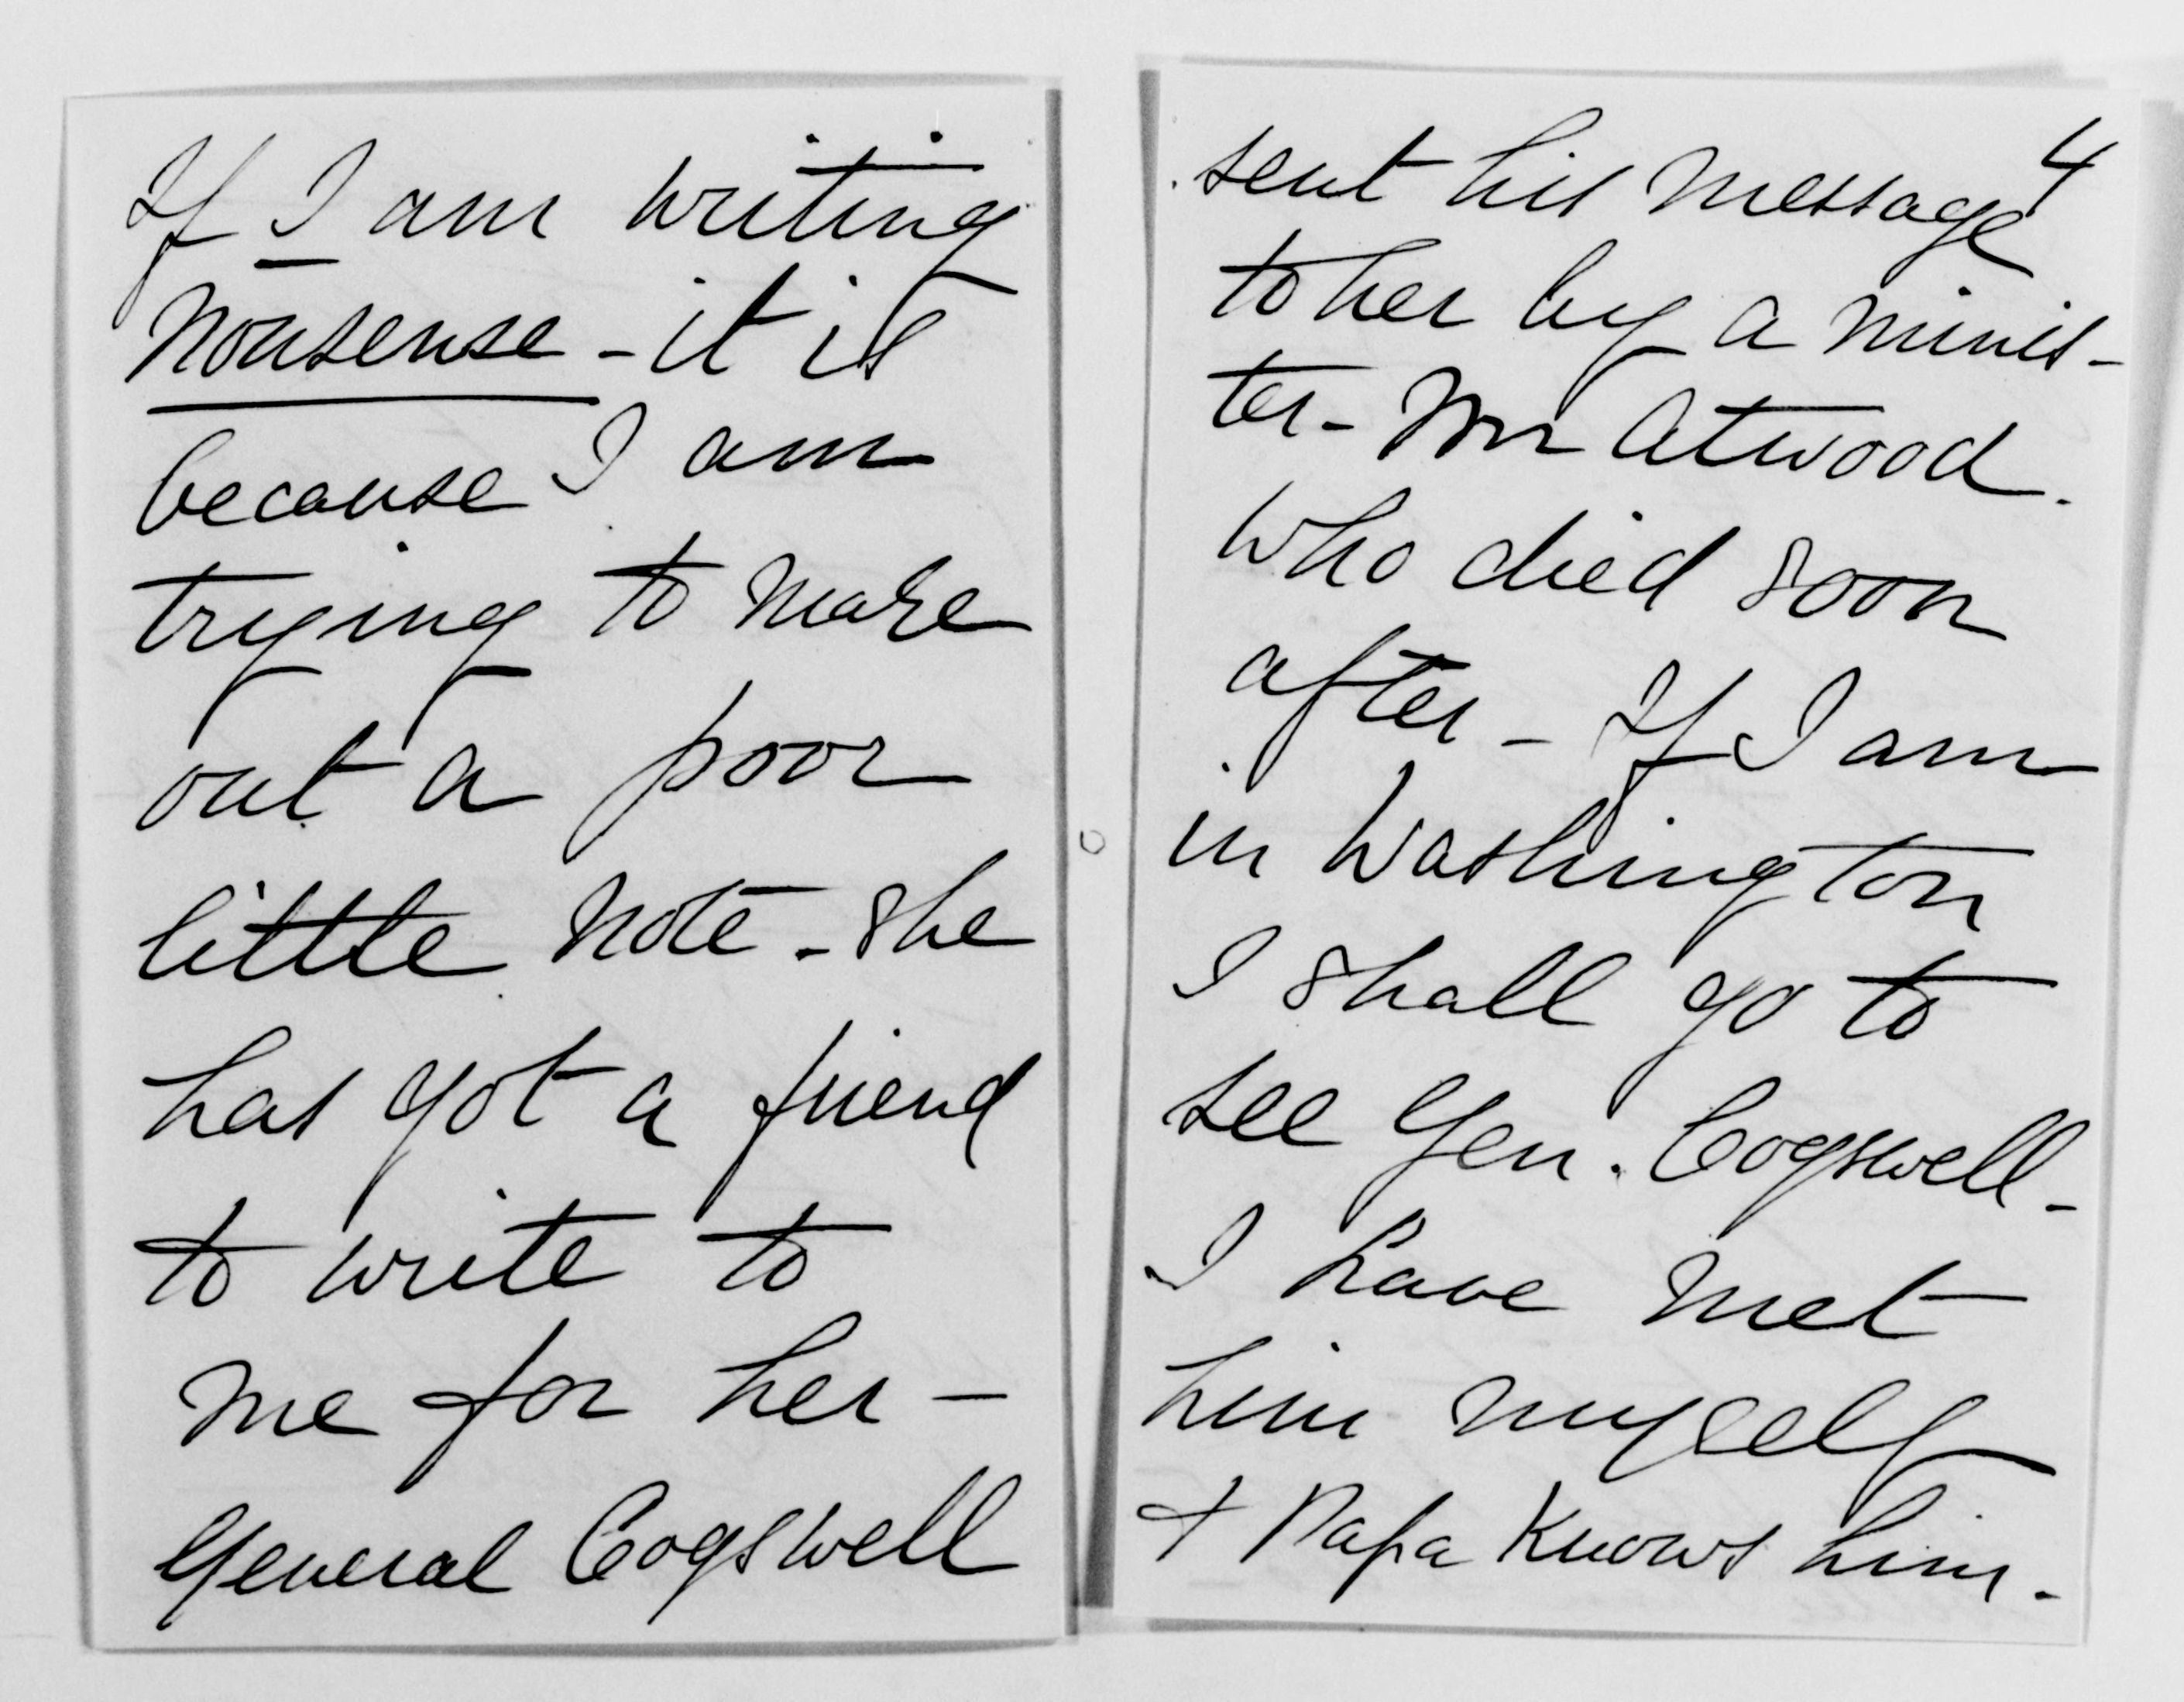 If I am writing
nonsense - it is
because I am
trying to make
out a poor
little note - she
has got a friend
to write to
me for her -
General Cogswell
4
sent his message
to her by a minis-
ter - Mr Atwood.
who died soon
after - If I am
in Washington
I shall go to
see Gen. Cogswell -
I have met
him myself
+ Papa knows him.